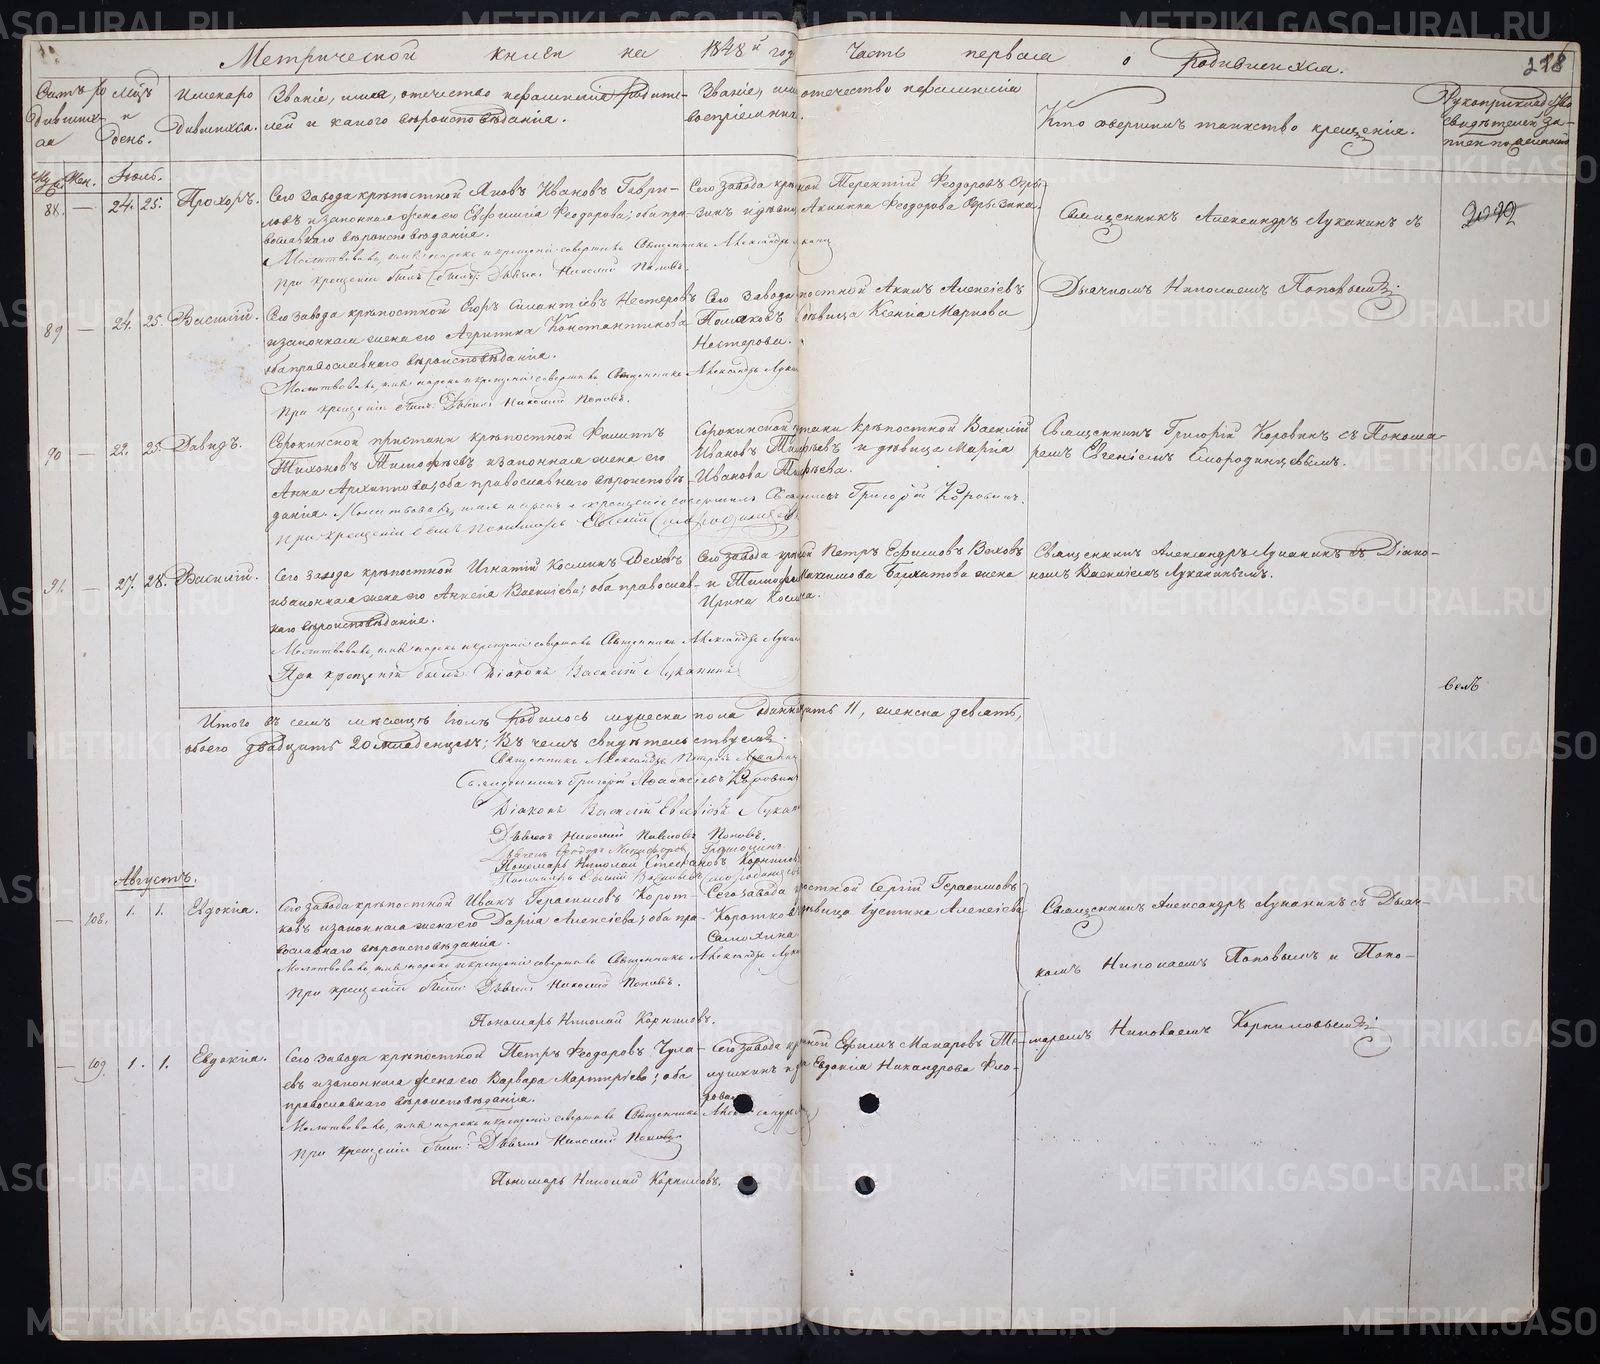 Метрической книги на 1848й годъ часть первая о родившихся.
228
Счетъ родившихся
Мцъ и день.
Имена родившихся.
Званіе, имя, отечество и фамилія родителей и какого вѣроисповѣданія.
Званіе, имя отечество и фамилія воспріемник.
Кто совершилъ таинство крещенія.
Рукоприкладство свидѣтелей записи по желанію
Муж. Жен. Іюль.
88. — 24. 25. Прохоръ.
Сего завода крѣпостной Яковъ Ивановъ Гаври-
ловъ и законная жена его Евфимія Феодорова; оба пра-
вославнаго вѣроисповѣданія.
Молитвовалъ, имя нарекъ и крещеніе совершилъ Священникъ Александръ Луканинъ
При крещеніи былъ: Дьячекъ Николай Поповъ.
Сего завода крѣпостной Терентій Феодоровъ
и дѣвица Акилина Феодорова
Священникъ Александръ Луканинъ съ
Дьячкомъ Николаемъ Поповымъ.
89 — 24. 25. Василій.
Сего завода крѣпостной Егоръ Силантіевъ Нестеровъ
и законная жена его Агрипина Константинова
оба православнаго вѣроисповѣданія.
Молитвовалъ, имя нарекъ и крещеніе совершилъ Священникъ Александръ Лукан
При крещеніи былъ: Дьячекъ Николай Поповъ.
Сего завода крѣпостной Акимъ Алексіевъ
Поляковъ дѣвица Ксенія Маркова
Нестерова.
90 — 22. 25. Давидъ.
Сорокинской пристани крѣпостной Филиппъ
Тихоновъ Тимофѣевъ и законная жена его
Анна Архиппова; оба православнаго вѣроисповѣ-
данія. Молитвовалъ, имя нарекъ и крещеніе совершилъ Священникъ Григорій Коровинъ.
При крещеніи былъ Пономарь Евгеній
Сорокинской пристани крѣпостной Василій
Ивановъ Тимофѣевъ и дѣвица Марія
Иванова Тимофѣева.
Священникъ Григорій Коровинъ съ Понома-
ремъ Евгеніемъ Смородинцовымъ.
91. — 27. 28. Василій.
Сего завода крѣпостной Игнатій Козминъ Веховъ
и законная жена его Анкепа Василіева; оба православ-
наго вѣроисповѣданія.
Молитвовалъ, имя нарекъ и крещеніе совершилъ Священникъ Александръ Лукан
При крещеніи былъ Діаконъ Василій Луканинъ
Сего завода крѣпостной Петръ Ефимовъ Веховъ
и Тимофея Максимова жена
Ирина Козмина.
Священникъ Александръ Луканинъ съ Діако-
номъ Василіемъ Луканинымъ.
Итого въ семъ мѣсяцѣ Іюлѣ родилось мужеска пола одиннадцать 11, женска девять,
обоего двадцать 20 младенцевъ; Въ чемъ свидѣтельствуемъ.
Священникъ Александръ Петровъ Луканинъ
Священникъ Григорій Афанасіевъ Коровинъ
Діаконъ Василій Евсевіевъ Лукан
Дьячекъ Николай Павловъ Поповъ.
Дьячекъ Феодоръ Никифоровъ
Пономарь Николай Стефановъ Корниловъ
Августъ.
— 108. 1. 1. Евдокія.
Сего завода крѣпостной Иванъ Герасимовъ Корот-
ковъ и законная жена его Дарія Алексіева; оба пра-
вославнаго вѣроисповѣданія.
Молитвовалъ имя нарекъ и крещеніе совершилъ Священникъ Александръ Лукан
При крещеніи были: Дьячекъ Николай Поповъ.
Пономарь Николай Корниловъ.
Сего завода крѣпостной Сергій Герасимовъ
Коротковъ дѣвица Іустина Алексіева
Самохина
Священникъ Александръ Луканинъ съ Дьяч-
комъ Николаемъ Поповымъ и Поно-
маремъ Николаемъ Корниловымъ
— 109. 1. 1. Евдокія.
Сего завода крѣпостной Петръ Феодоровъ Чула-
евъ и законная жена его Варвара Мартиріева; оба
православнаго вѣроисповѣданія.
Молитвовалъ, имя нарекъ и крещеніе совершилъ Священникъ Александръ
При крещеніи были: Дьячекъ Николай Поповъ
Пономарь Николай Корниловъ.
Сего завода крѣпостной Ефимъ Макаровъ
и Евдокія Никандрова
METRIKI.GASO-URAL.RU